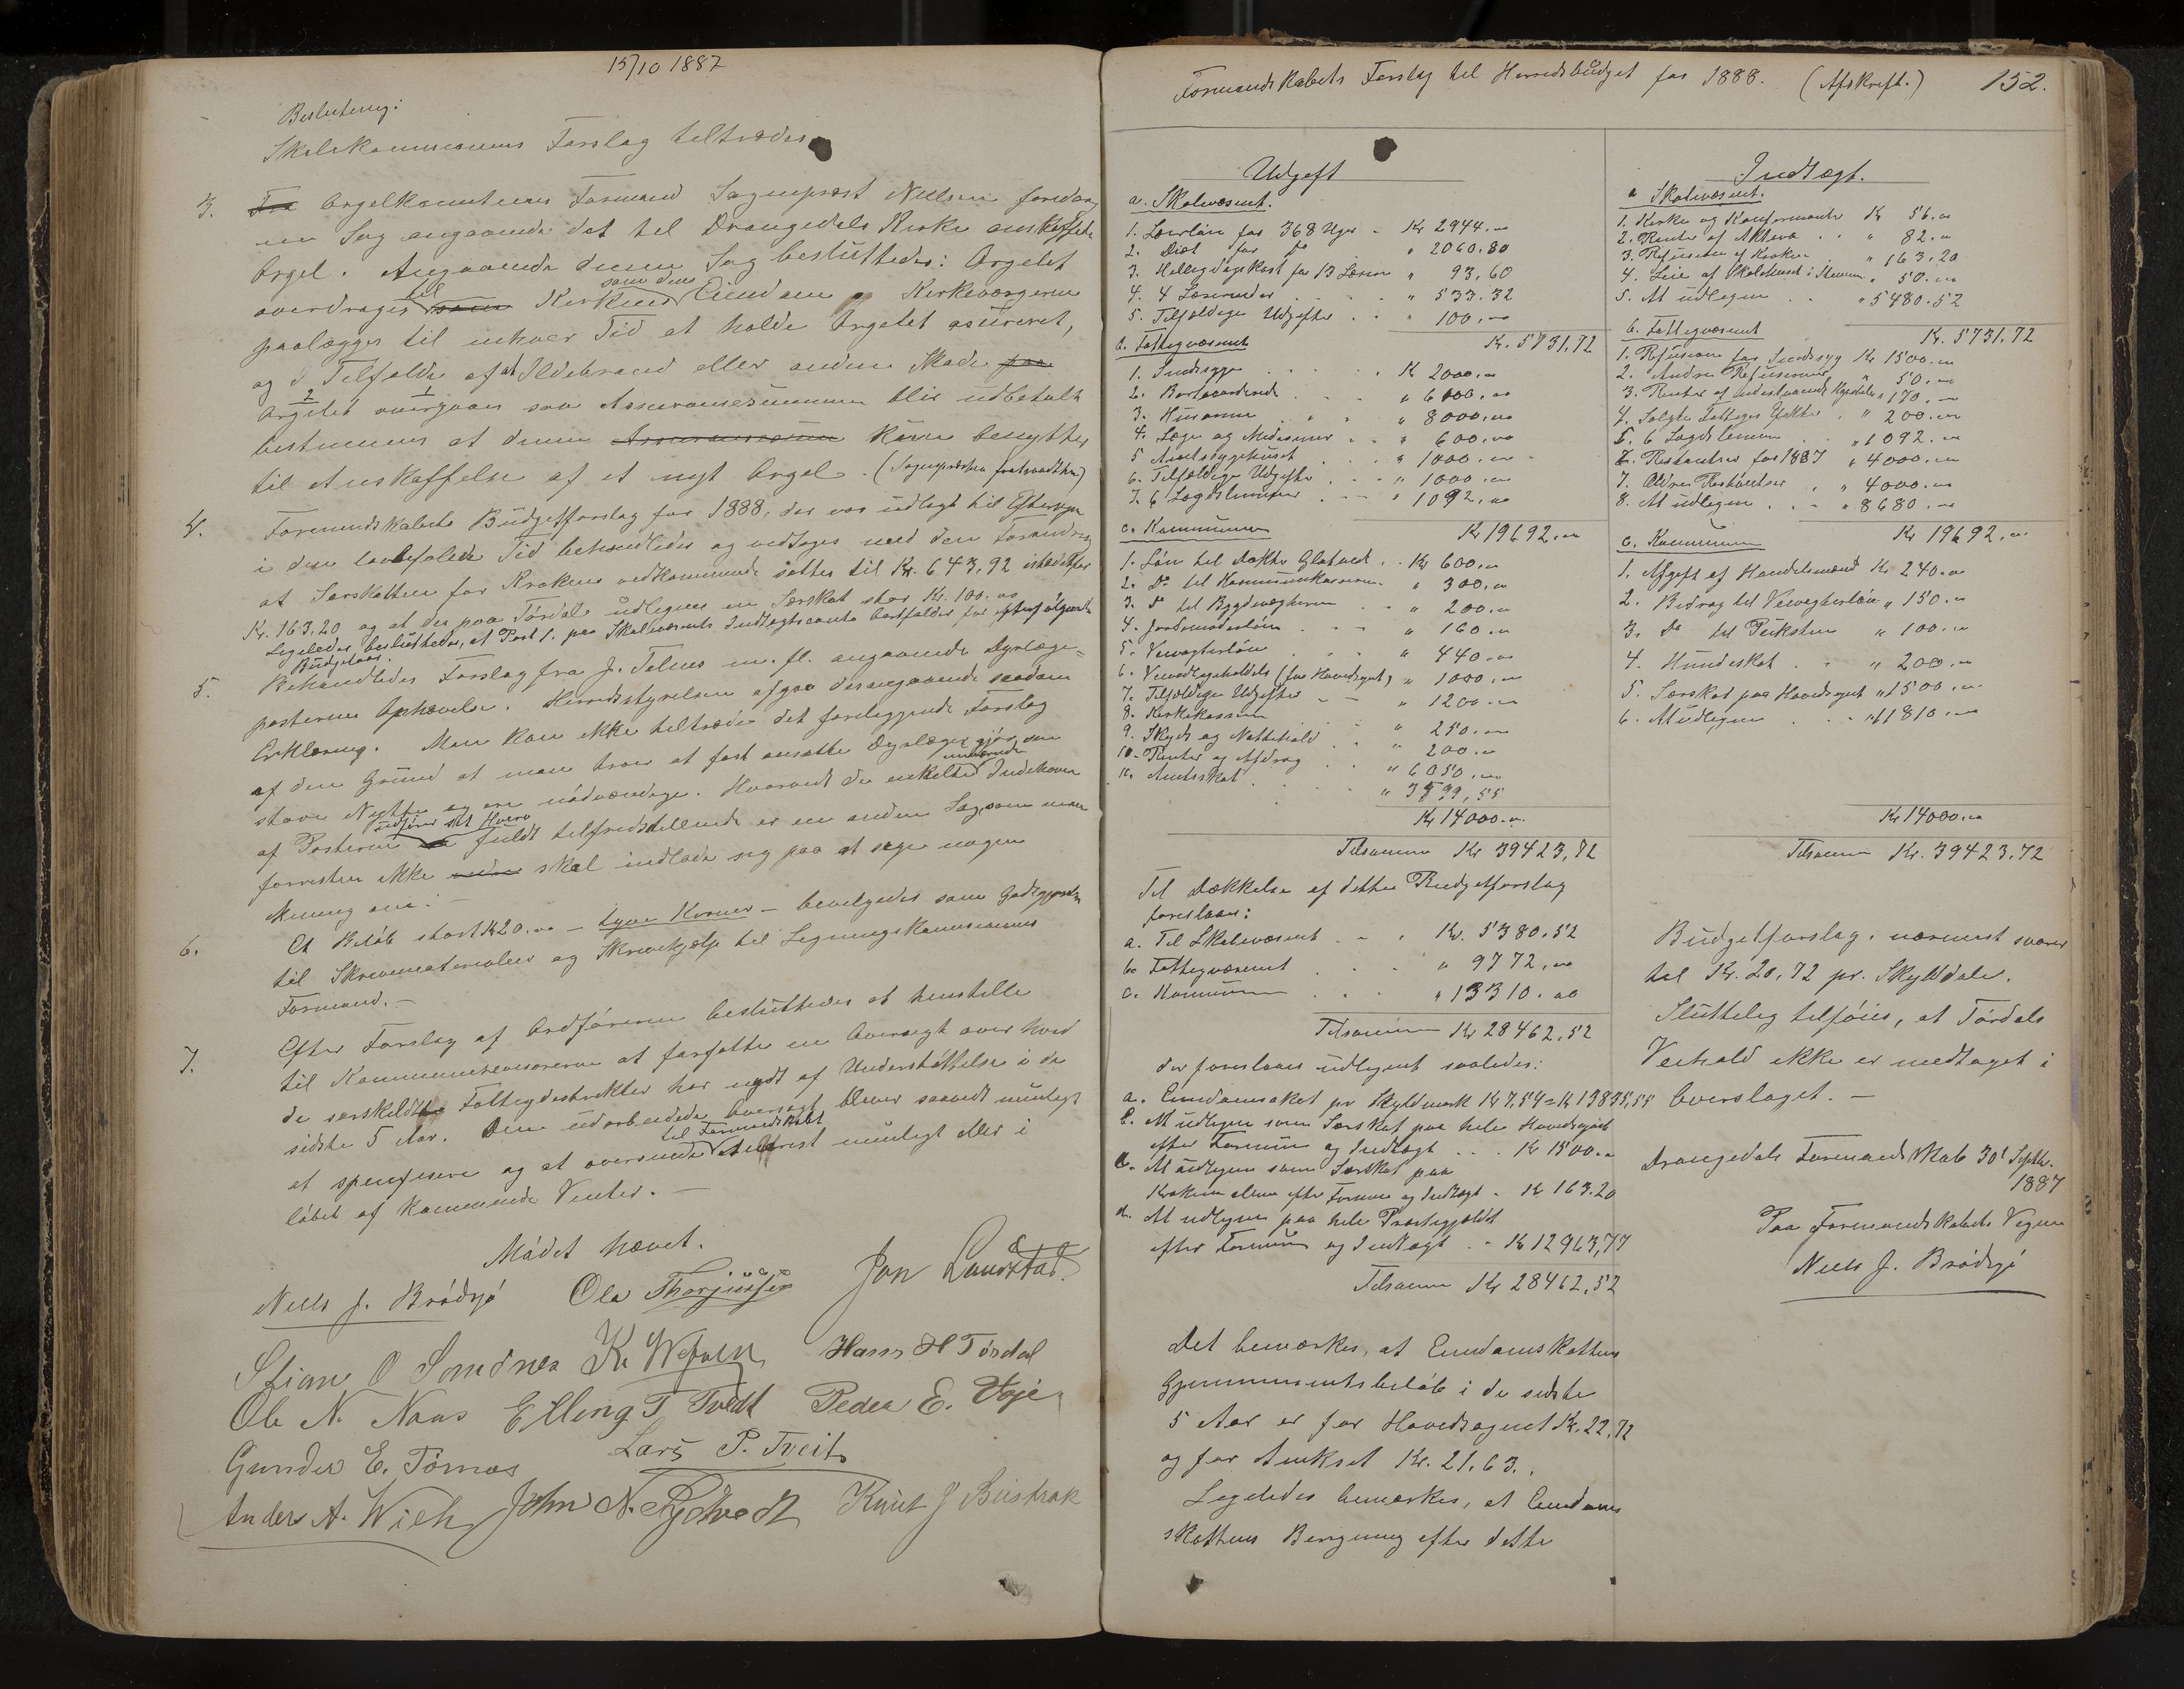 15/10 1887
Beslutning:
Skolekommissionens Forslag tiltrædes
3. Fra Orgelkomiteens Formand Sogneprest Nielsen foredrog
en Sag angaaende det til Drangedals Kirke anskaffede
Orgel. Angaaende denne Sag besluttedes: Orgelet
overdrages til som Kirkens som dens Eiendom og Kirkeværgerne
paalægges til enhver Tid at holde Orgelet asureret,
og i Tilfælde af at Ildebrand eller anden Skade paa
Orgelet overgaar saa Assurancesummen blir udbetalt
bestemmes at denne Assurancesum kun benyttes
til Anskaffelse af et nyt Orgel. (Sognepresten fratraadte)
4. Formandskabets Budgetforslag for 1888, der var udlagt til Eftersyn
i den lovbefalede Tid behandledes og vedtoges med den Forandring
at Særskatten for Krokens vedkommende sættes til Kr. 643,92 istedetfor
Kr. 163,20 og at der paa Tørdal udlignes en Særskat stor Kr. 100.00
Ligeledes besluttedes, at Post 1. paa Skolevæsenets Indtægtsconto bortfalder for efterfølgende
Budgetaar.
5. Behandledes Forslag fra J. Tolnes m. fl. angaaende Dyrlæge=
posternes Ophævelse. Herredsstyrelsen afgav desangaaende saadan
Erklæring. Man kan ikke tiltræde det foreliggende Forslag
af den Grund at man tror at fast ansatte Dyrlæger gjør sin
store Nytte og ere nødvendige. Hvorvidt de enkelte nuværende Indehavere
af Posterne udfører sit Hverv fuldt tilfredsstillende er en anden Sag, som man
forresten ikke skal indlade sig paa at sige nogen
Mening om.
6. Et Beløb stort Kr 20.00 – tyve Kroner – bevilgedes som Godtgjørelse
til Skrivematerialier og Skrivehjælp til Ligningskommissionens
Formand. –
7. Efter Forslag af Ordføreren besluttedes at henstille
til Kommunerevisorerne at forfatte en Oversigt over hvad
de særskildte Fattigdistrikter har nydt af Understøttelse i de
sidste 5 Aar. Den udarbeidede Oversigt bliver saavidt muligt
at specifisere og at oversende til Formandskabet snarest muligt eller i
løbet af kommende Vinter. –
Mødet hævet.
Niels J. Brødsjø Ola Thorjussen Jon Landstad
Stian O Sandnes K. Wefald Hans H Tørdal
Ole N. Naas Elling T Tvedt Peder E. Voje
Gunder E. Tørnes Lars P. Tveit
Anders A. Wiek John N. Rytvedt Knut J Bustrak
Formandskabets Forslag til Herredsbudget for 1888. (Afskrift.) 152.
Udgift
a. Skolevæsenet.
1. Lærerløn for 368 Uger - Kr 2944.00
2. Diæt for do " 2060.80
3. Helligdagskost for 13 Lærere " 93,60
4. 4 Læreruder " 533.32
5. Tilfældige Udgifter " 100,00
Kr. 5731,72
b. Fattigvæsenet
1. Sindssyge Kr 2000.00
2. Bortaccorderede " 6000,00
3. Husarme " 8000,00
4. Læge og Medeciner " 600.00
5 Amtssygehuset " 1000.00
6. Tilfældige Udgifter " 1000,00
7. 6 Lægdslemmer " 1092,00
Kr 19692,00
c. Kommunen
1. Løn til Doktor Glatved Kr 600.00
2. Do til Kommunekasseren " 300,00
3. Do til Bygdevægteren " 200.00
4. Jordemoderløn " 160.00
5. Veivogterløn " 440.00
6. Veivedligeholdels (for Hovedsognet) " 1000,00
7. Tilfældige Udgifter " 1200.00
8. Kirkekassen " 250.00
9. Skyds og Nattehold " 200.00
10. Renter og Afdrag " 6050,00
11. Amtsskat " 3599,55
Kr 14000.00
Tilsammen Kr 39423,72
Til Dækkelse af dette Budgetforslag
foreslaaes:
a. Til Skolevæsenet Kr. 5380.52
b. Fattigvæsenet " 9772,00
c. Kommunen " 13310.00
Tilsammen Kr 28462,52
der foreslaaes udlignet saaledes:
a. Eiendomsskat pr Skyldmark Kr 7.54 = Kr 13835,55
b. At udlignes som Særskat paa hele Hovedsognet
efter Formue og Indtægt Kr 1500.00
c. At udlignes som Særskat paa
Kroken alene efter Formue og Indtægt - Kr 163.20
d. At udlignes paa hele Præstegjældet
efter Formue og Indtægt - Kr 12963,77
Tilsammen Kr 28462,52
Det bemærkes, at Eiendomsskattens
Gjennemsnitsbeløb i de sidste
5 Aar er for Hovedsognet Kr. 22,72
og for Annekset Kr. 21.63.
Ligeledes bemærkes, at Eiendoms
skattens Beregning efter dette
Indtægt.
a Skolevæsenet.
1. Kirke og Konfirmanter Kr 56.00
2. Renter af Aktiva " 82.00
3. Refusion af Kroken " 163,20
4. Leie af Skolehuset i Stemmen " 50.00
5. At udlignes " 5480.52
Kr. 5731,72
b. Fattigvæsenet
1. Refusion for Sindssyg Kr 1500.00
2. Andre Refusioner " 50.00
3. Renter af indestaaende Kapitaler " 170,00
4. Solgte Fattiges Effekter " 200.00
5. 6 Lægdslemmer " 1092.00
6. Restantser for 1887 " 4000.00
7. Ældre Restantser " 4000.00
8. At udlignes " 8680.00
Kr 19692.00
c. Kommunen
1. Afgift af Handelsmænd Kr 240.00
2. Bidrag til Veivogterløn " 150.00
3. Do til " 100.00
4. Hundeskat " 200.00
5. Særskat paa Hovedsognet " 1500.00
6. At udlignes " 11810.00
Kr 14000.00
Tilsammen Kr. 39423.72
Budgetforslag, nærmest svarer
til Kr. 20,72 pr. Skylddaler.
Sluttelig tilføies, at Tørdals
Veihold ikke er medtaget i
Overslaget. –
Drangedals Formandskab 30te Septbr.
1887
Paa Formandskabets Vegne
Niels J. Brødsjø